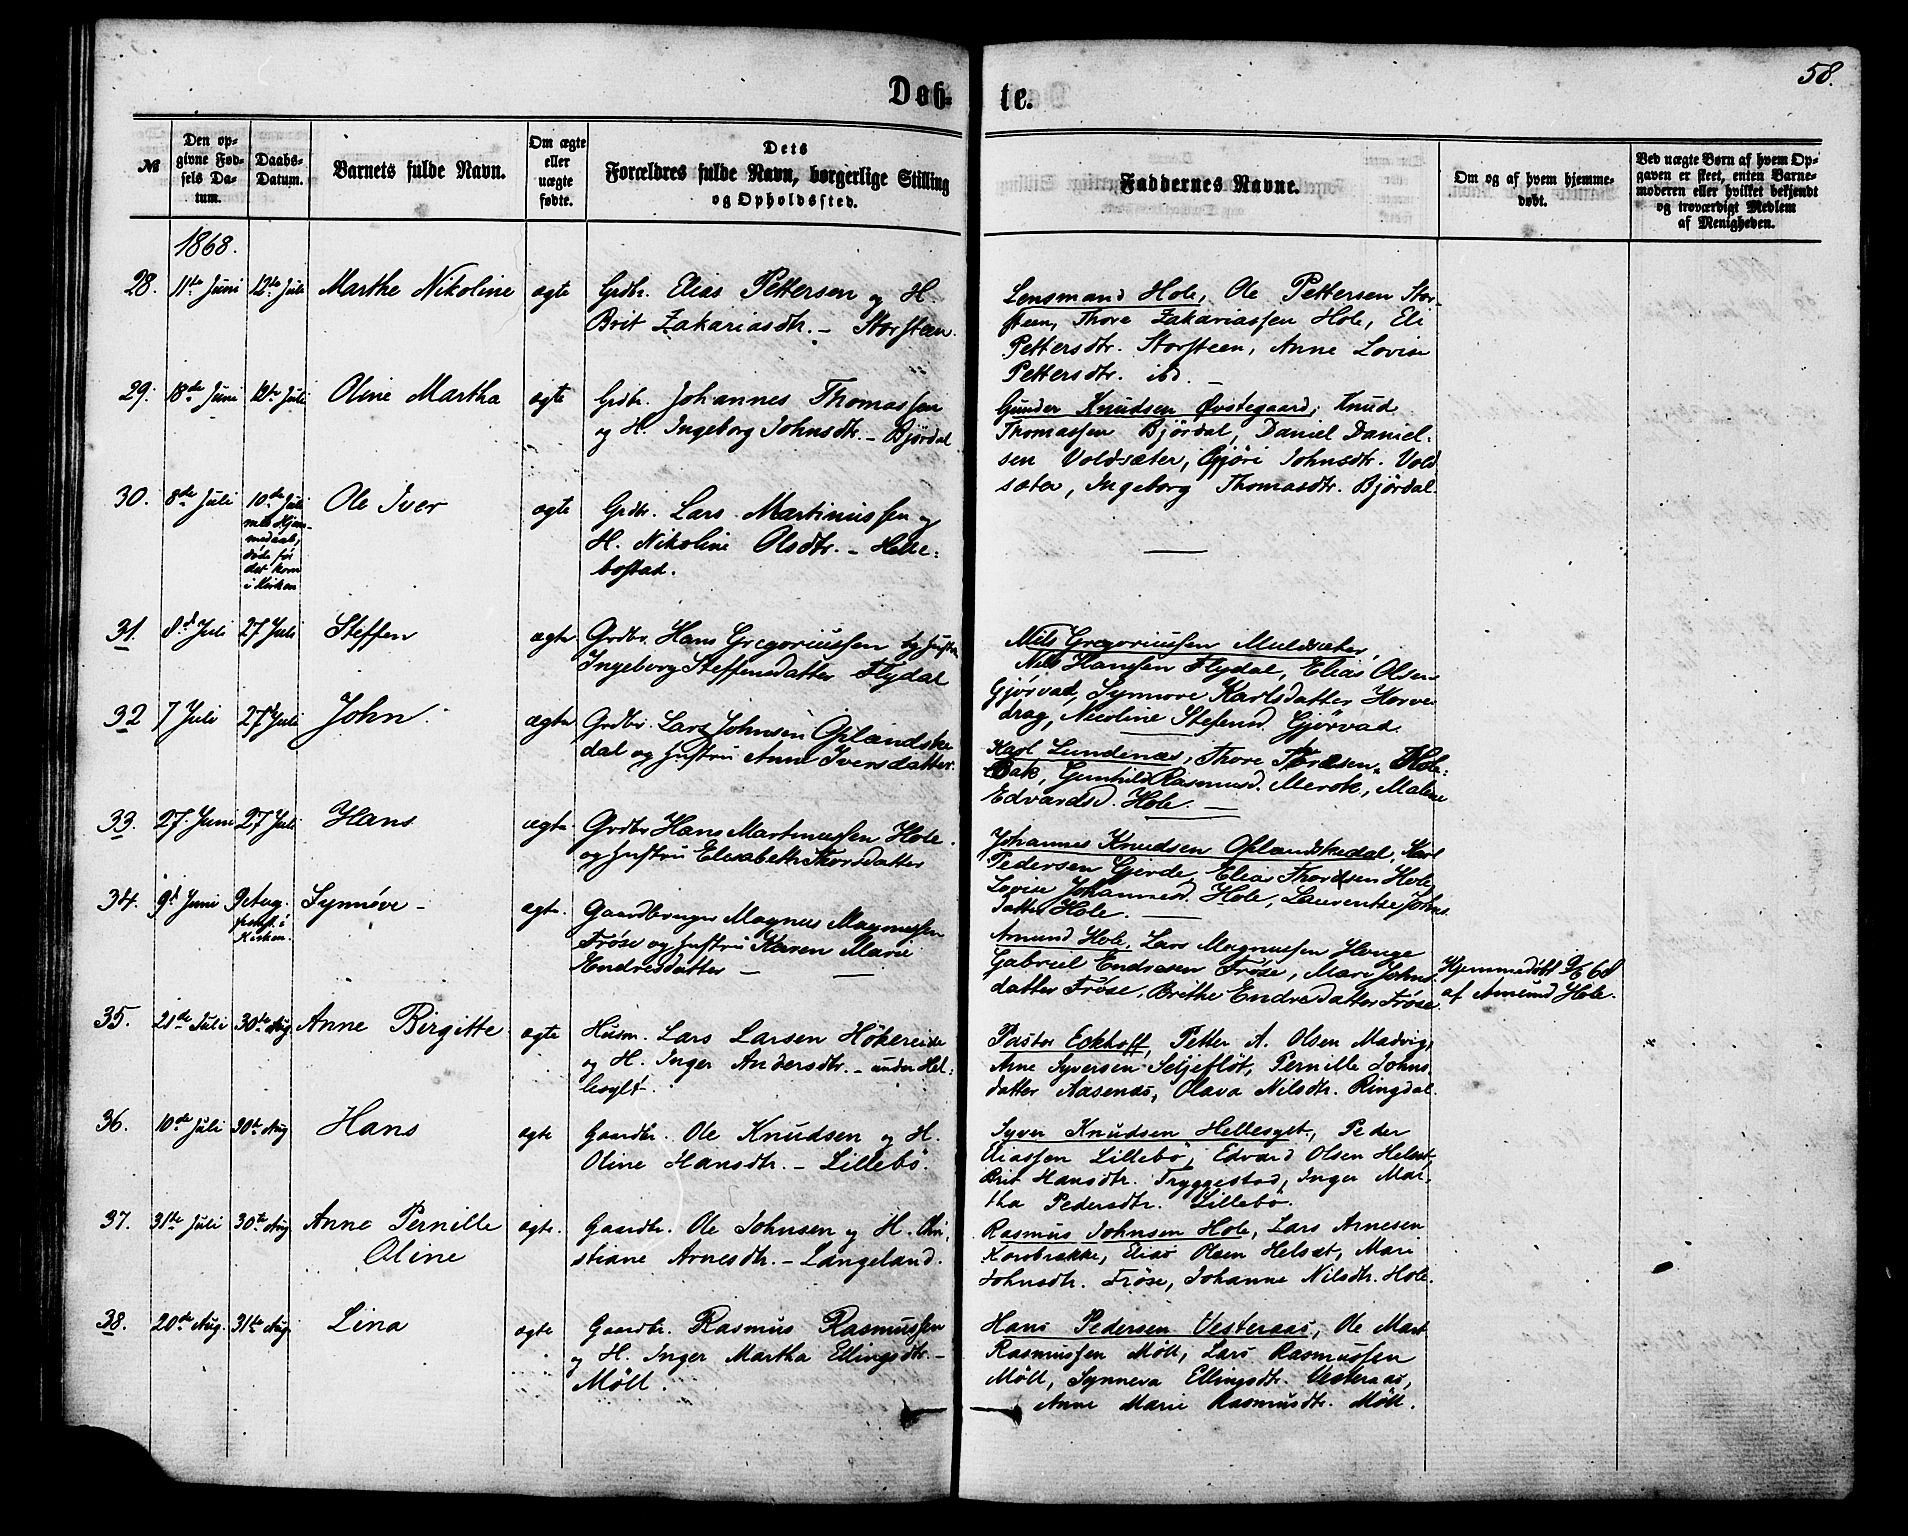 58.
Døb-
te.
№
Den op-
givne Fød-
sels Da-
tum.
Daabs-
Datum.
Barnets fulde Navn.
Om ægte
eller
uægte
fødte.
Dets
Forældres fulde Navn, borgerlige Stilling
og Opholdssted.
Faddernes Navne.
Om og af hvem hjemme-
døbt.
Ved uægte Børn af hvem Op-
gaven er skeet, enten Barne-
moderen eller hvilket bekjendt
og troværdigt Medlem
af Menigheden.
1868.
28. 11te Juni 12te Juli Marthe Nikoline ægte Grdbr. Elias Pettersen og H.
Brit Zakariasdtr. – Storsteen.
Lensmand Hole, Ole Pettersen Stor-
steen, Thore Zakariassen Hole, Eli
Pettersdtr. Storsteen, Anne Lovise
Pettersdtr. ibd. –
29. 18de Juni 12te Juli Oline Martha ægte Grdbr. Johannes Thomassen
og H. Ingeborg Johnsdtr. – Bjørdal
Gunder Knudsen Øvstegaard, Knud
Thomassen Bjørdal, Daniel Daniel-
sen Voldsæter, Gjøri Johnsdtr. Vold
sæter, Ingeborg Thomasdtr. Bjørdal.
30. 8de Juli 10de Juli
med Hjem-
medaab,
døde før
det kom
i Kirken
Ole Iver ægte Grdbr. Lars Martinussen og
H. Nikoline Olsdtr. – Helle-
bostad.
31. 8d Juli 27 Juli Steffen ægte Grdbr. Hans Gregoriussen og Hustru
Ingeborg Steffensdatter Flydal
Nils Gregoriussen Muldsæter,
Nils Hansen Flydal, Elias Olsen
Gjørvad, Synnove Karlsdatter Horve-
drag, Nicoline Stefensd. Gjørvad.
32 7 Juli 27d Juli John. ægte Grdbr. Lars Johnsen Oplandske
dal og Hustru Anne Iversdatter.
Karl Lundenæs, Thore Thoresen Hole-
Bak, Gunhild Rasmusd. Merok, Maline
Edvardsd. Hole. –
33. 27. Juni 27 Juli Hans ægte Grdbr Hans Martinussen Hole.
og Hustru Elisabeth Thorsdatter
Johannes Knudsen Oplandskedal, Karl
Pedersen Gjerde, Elias Thordsen Hole
Lovise Johannesd. Hole, Laurentse Johns
datter Hole.
34. 9d Juni 9 Aug.
i
Kirken.
Synnøve – ægte. Gaardbruger Magnus Magnussen
Frøse og Hustru Karen Marie
Endresdatter –
Amund Hole, Lars Magnussen Houge
Gabriel Endresen Frøse, Mari Johns
datter Frøse, Brithe Endresdatter Frøse.
Hjemmedøbt 9/6 68
af Amund Hole.
35. 21de Juli 30te Aug. Anne Birgitte ægte Husm. Lars Larsen Høkereide
og H. Inger Andersdtr. – under Hel-
lesylt.
Pastor Eckhoff, Petter A. Olsen Madvig,
Arne Syversen Seljeflot, Pernille Johns
datter Aasenæs, Olava Nilsdtr. Ringdal.
36. 10de Juli 30te Aug Hans ægte Gaardbr. Ole Knudsen og H.
Oline Hansdtr. – Lillebø.
Syver Knudsen Hellesylt, Peder
Eliassen Lillebø, Edvard Olsen Helset,
Brit Hansdtr. Tryggestad, Inger Mar-
tha Pedersdtr. Lillebø.
37. 31te Juli 30te Aug Anne Pernille
Oline
ægte. Gaardbr. Ole Johnsen og H. Chri-
stiane Arnesdtr. – Langeland.
Rasmus Johnsen Hole, Lars Arnesen
Korsbrække, Elias Olsen Helset, Mari
Johnsdtr. Frøse, Johanne Nilsdtr. Hole.
38. 20de Aug. 31te Aug. Lina ægte Gaardbr. Rasmus Rasmussen
og H. Inger Martha Ellingsdtr. –
Möll.
Hans Pedersen Vesteraas, Ole Mart
Rasmussen Möll, Lars Rasmussen
Möll, Synneva Ellingsdtr. Vesteraas,
Anne Marie Rasmusdtr. Möll.